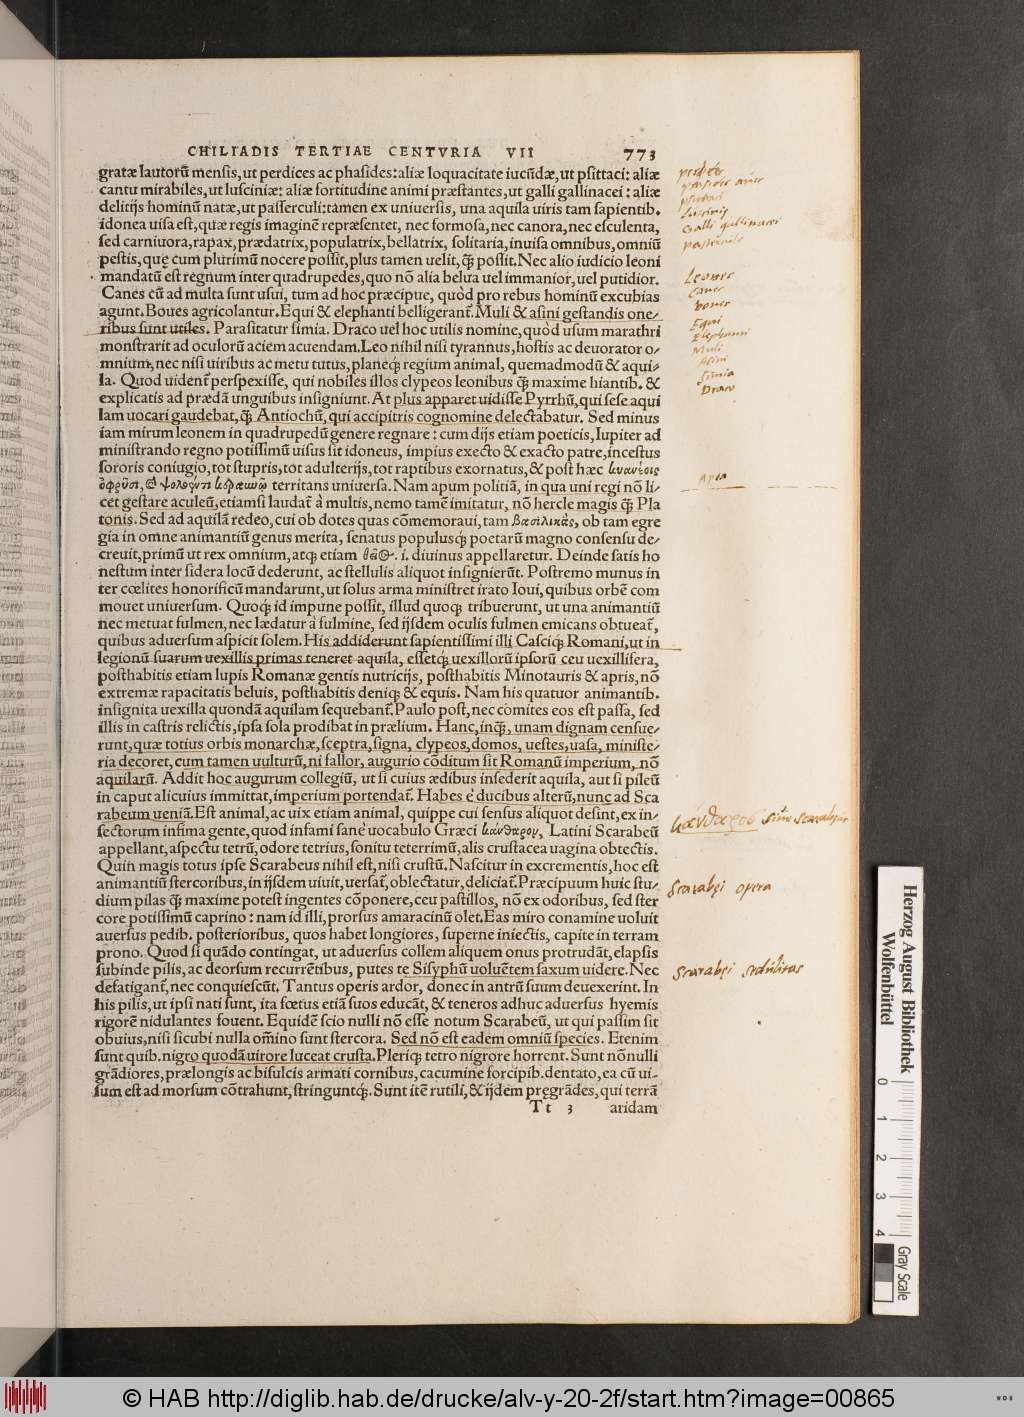 CHILIADIS TERTIAE CENTVRIA VII 773
gratæ lautorũ mensis, ut perdices ac phasides: aliæ loquacitate iucũdæ, ut psittaci: aliæ
cantu mirabiles, ut lusciniæ: aliæ fortitudine animi præstantes, ut galli gallinacei: aliæ
delitijs hominũ natæ, ut passerculi: tamen ex uniuersis, una aquila uiris tam sapientib.
idonea uisa est, quæ regis imaginẽ repræsentet, nec formosa, nec canora, nec esculenta,
sed carniuora, rapax, prædatrix, populatrix, bellatrix, solitaria, inuisa omnibus, omniũ
pestis, quę cum plurimũ nocere possit, plus tamen uelit, q̃ possit. Nec alio iudicio leoni
mandatũ est regnum inter quadrupedes, quo nõ alia belua uel immanior, uel putidior.
Canes cũ ad multa sunt usui, tum ad hoc præcipue, quòd pro rebus hominũ excubias
agunt. Boues agricolantur. Equi & elephanti belligerant᷑. Muli & asini gestandis one-
ribus sunt utiles. Parasitatur simia. Draco uel hoc utilis nomine, quòd usum marathri
monstrarit ad oculorũ aciem acuendam. Leo nihil nisi tyrannus, hostis ac deuorator o-
mnium, nec nisi uiribus ac metu tutus, planeq́ꝫ regium animal, quemadmodũ & aqui-
la. Quod uident᷑ perspexisse, qui nobiles illos clypeos leonibus q̃ maxime hiantib. &
explicatis ad prædã unguibus insigniunt. At plus apparet uidisse Pyrrhũ, qui sese aqui
lam uocari gaudebat, q̃ Antiochũ, qui accipitris cognomine delectabatur. Sed minus
iam mirum leonem in quadrupedũ genere regnare: cum dijs etiam poeticis, Iupiter ad
ministrando regno potissimũ uisus sit idoneus, impius execto & exacto patre, incestus
sororis coniugio, tot stupris, tot adulterijs, tot raptibus exornatus, & post hæc κυανέοις
ὀφρῦσι, & ψολόεντι κεραυνῷ territans uniuersa. Nam apum politiã, in qua uni regi nõ li-
cet gestare aculeũ, etiamsi laudat᷑ à multis, nemo tamẽ imitatur, nõ hercle magis q̃ Pla
tonis. Sed ad aquilã redeo, cui ob dotes quas cõmemoraui, tam βασιλικὰς, ob tam egre
gia in omne animantiũ genus merita, senatus populusq́ꝫ poetarũ magno consensu de-
creuit, primũ ut rex omnium, atq́ꝫ etiam θεῖος .i. diuinus appellaretur. Deinde satis ho
nestum inter sidera locũ dederunt, ac stellulis aliquot insignierũt. Postremo munus in
ter cœlites honorificũ mandarunt, ut solus arma ministret irato Ioui, quibus orbẽ com
mouet uniuersum. Quoq́ꝫ id impune possit, illud quoq́ꝫ tribuerunt, ut una animantiũ
nec metuat fulmen, nec lædatur à fulmine, sed ijsdem oculis fulmen emicans obtueat᷑,
quibus aduersum aspicit solem. His addiderunt sapientissimi illi Casciq́ꝫ Romani, ut in
legionũ suarum uexillis primas teneret aquila, essetq́ꝫ uexillorũ ipsorũ ceu uexillifera,
posthabitis etiam lupis Romanæ gentis nutricijs, posthabitis Minotauris & apris, nõ
extremæ rapacitatis beluis, posthabitis deniq́ꝫ & equis. Nam his quatuor animantib.
insignita uexilla quondã aquilam sequebant᷑. Paulo post, nec comites eos est passa, sed
illis in castris relictis, ipsa sola prodibat in prælium. Hanc, inq̃, unam dignam censue-
runt, quæ totius orbis monarchæ, sceptra, signa, clypeos, domos, uestes, uasa, ministe-
ria decoret, cum tamen uulturũ, ni fallor, augurio cõditum sit Romanũ imperium, nõ
aquilarũ. Addit hoc augurum collegiũ, ut si cuius ædibus insederit aquila, aut si pileũ
in caput alicuius immittat, imperium portendat᷑. Habes è ducibus alterũ, nunc ad Sca
rabeum ueniã. Est animal, ac uix etiam animal, quippe cui sensus aliquot desint, ex in-
sectorum infima gente, quod infami sanè uocabulo Græci κάνθαρον, Latini Scarabeũ
appellant, aspectu tetrũ, odore tetrius, sonitu teterrimũ, alis crustacea uagina obtectis.
Quin magis totus ipse Scarabeus nihil est, nisi crustũ. Nascitur in excrementis, hoc est
animantiũ stercoribus, in ijsdem uiuit, uersat᷑, oblectatur, deliciat᷑. Præcipuum huic stu-
dium pilas q̃ maxime potest ingentes cõponere, ceu pastillos, nõ ex odoribus, sed ster
core potissimũ caprino: nam id illi, prorsus amaracinũ olet. Eas miro conamine uoluit
auersus pedib. posterioribus, quos habet longiores, superne iniectis, capite in terram
prono. Quod si quãdo contingat, ut aduersus collem aliquem onus protrudãt, elapsis
subinde pilis, ac deorsum recurrẽtibus, putes te Sisyphũ uoluẽtem saxum uidere. Nec
defatigant᷑, nec conquiescũt. Tantus operis ardor, donec in antrũ suum deuexerint. In
his pilis, ut ipsi nati sunt, ita fœtus etiã suos educãt, & teneros adhuc aduersus hyemis
rigorẽ nidulantes fouent. Equidẽ scio nulli nõ esse notum Scarabeũ, ut qui passim sit
obuius, nisi sicubi nulla om̃ino sunt stercora. Sed nõ est eadem omniũ species. Etenim
sunt quib. nigro quodã uirore luceat crusta. Pleriq́ꝫ tetro nigrore horrent. Sunt nõnulli
grãdiores, prælongis ac bisulcis armati cornibus, cacumine forcipib. dentato, ea cũ ui-
sum est ad morsum cõtrahunt, stringuntq́ꝫ. Sunt itẽ rutili, & ijdem pręgrãdes, qui terrã
Tt 3 aridam
Galli gallinacei
Leones
Canes
Boues
Equi
Elephanti
Muli
Asini
Simia
Draco
Apes
κάνθαρος siue scarabeus
Scarabęi opera
Scarabęi sedulitas
Herzog August Bibliothek
Wolfenbüttel
0 1 2 3 4
Gray Scale
© HAB http://diglib.hab.de/drucke/alv-y-20-2f/start.htm?image=00865